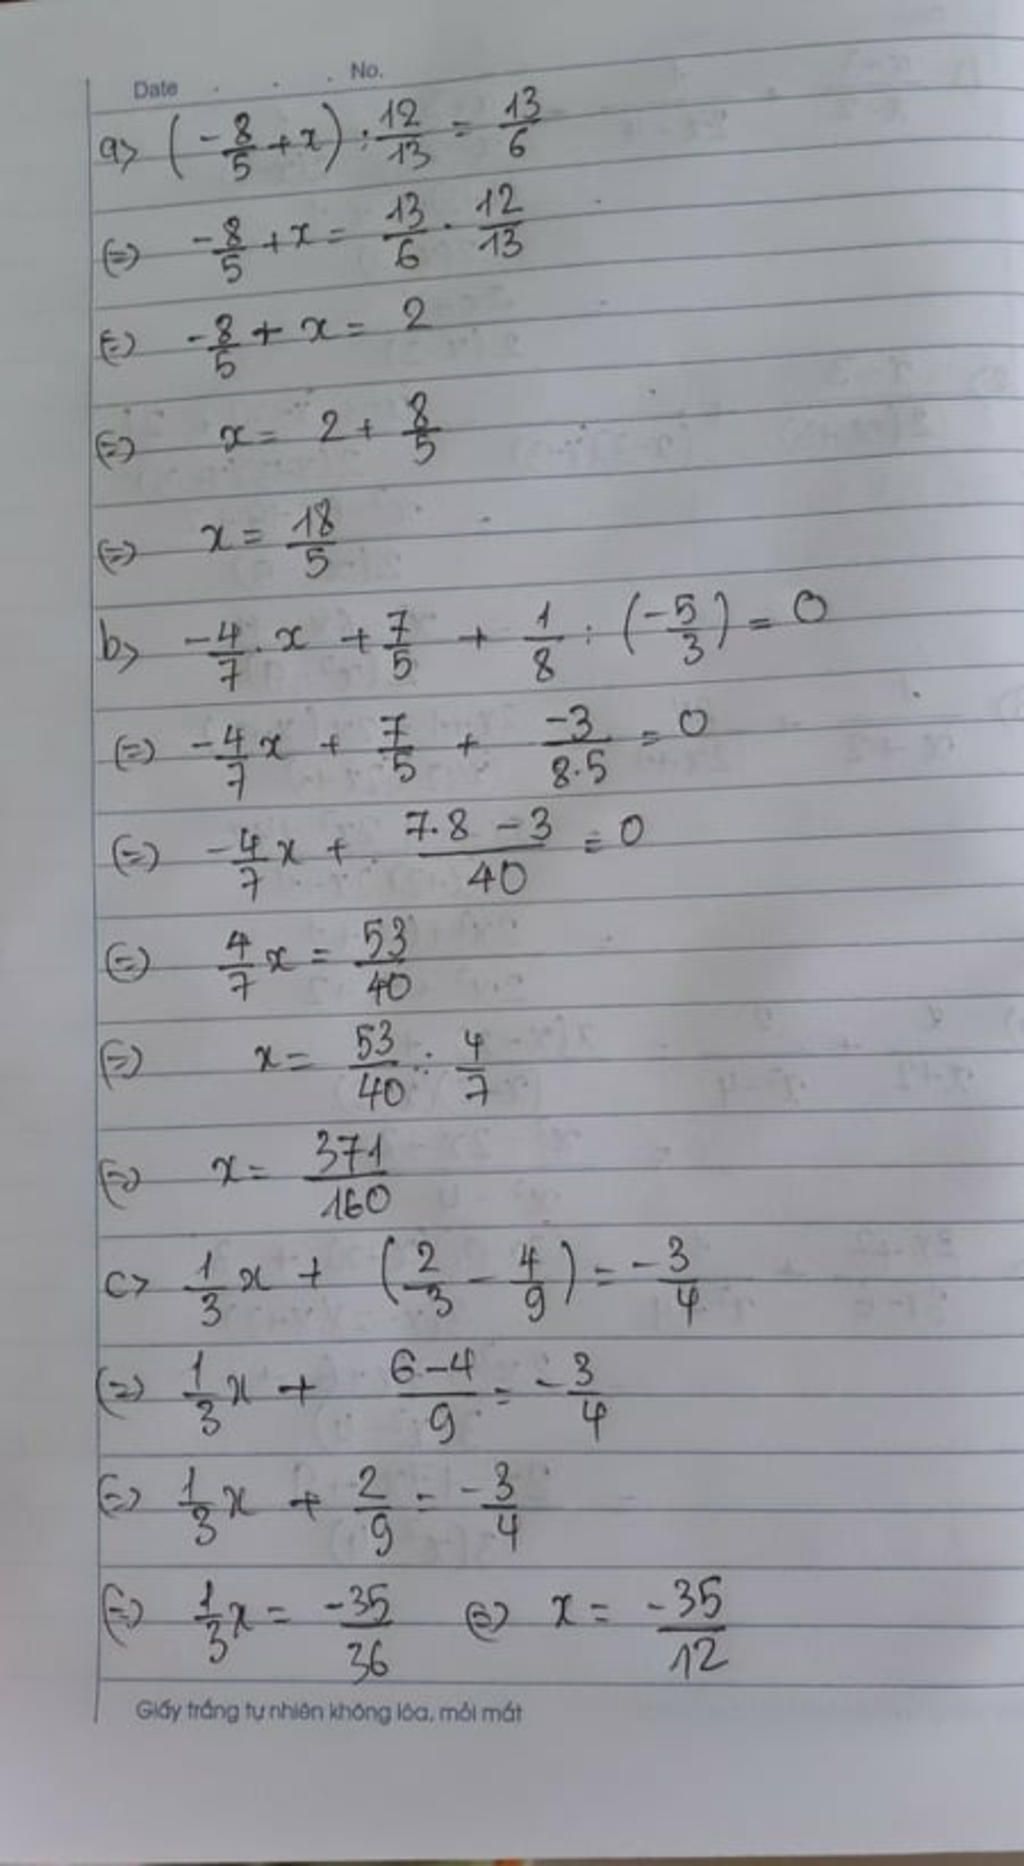 Date . . . No.
a> (-8/5 + x) : 12/13 = 13/6
(=) -8/5 + x = 13/6 . 12/13
(=) -8/5 + x = 2
(=) x = 2 + 8/5
(=) x = 18/5
b> -4/7 . x + 7/5 + 1/8 : (-5/3) = 0
(=) -4/7 x + 7/5 + -3/8.5 = 0
(=) -4/7 x + 7.8 - 3/40 = 0
(=) 4/7 x = 53/40
(=) x = 53/40 : 4/7
(=) x = 371/160
c> 1/3 x + (2/3 - 4/9) = -3/4
(=) 1/3 x + 6-4/9 = -3/4
(=) 1/3 x + 2/9 = -3/4
(=) 1/3 x = -35/36 (=) x = -35/12
Giấy trắng tự nhiên không lóa, mỏi mắt